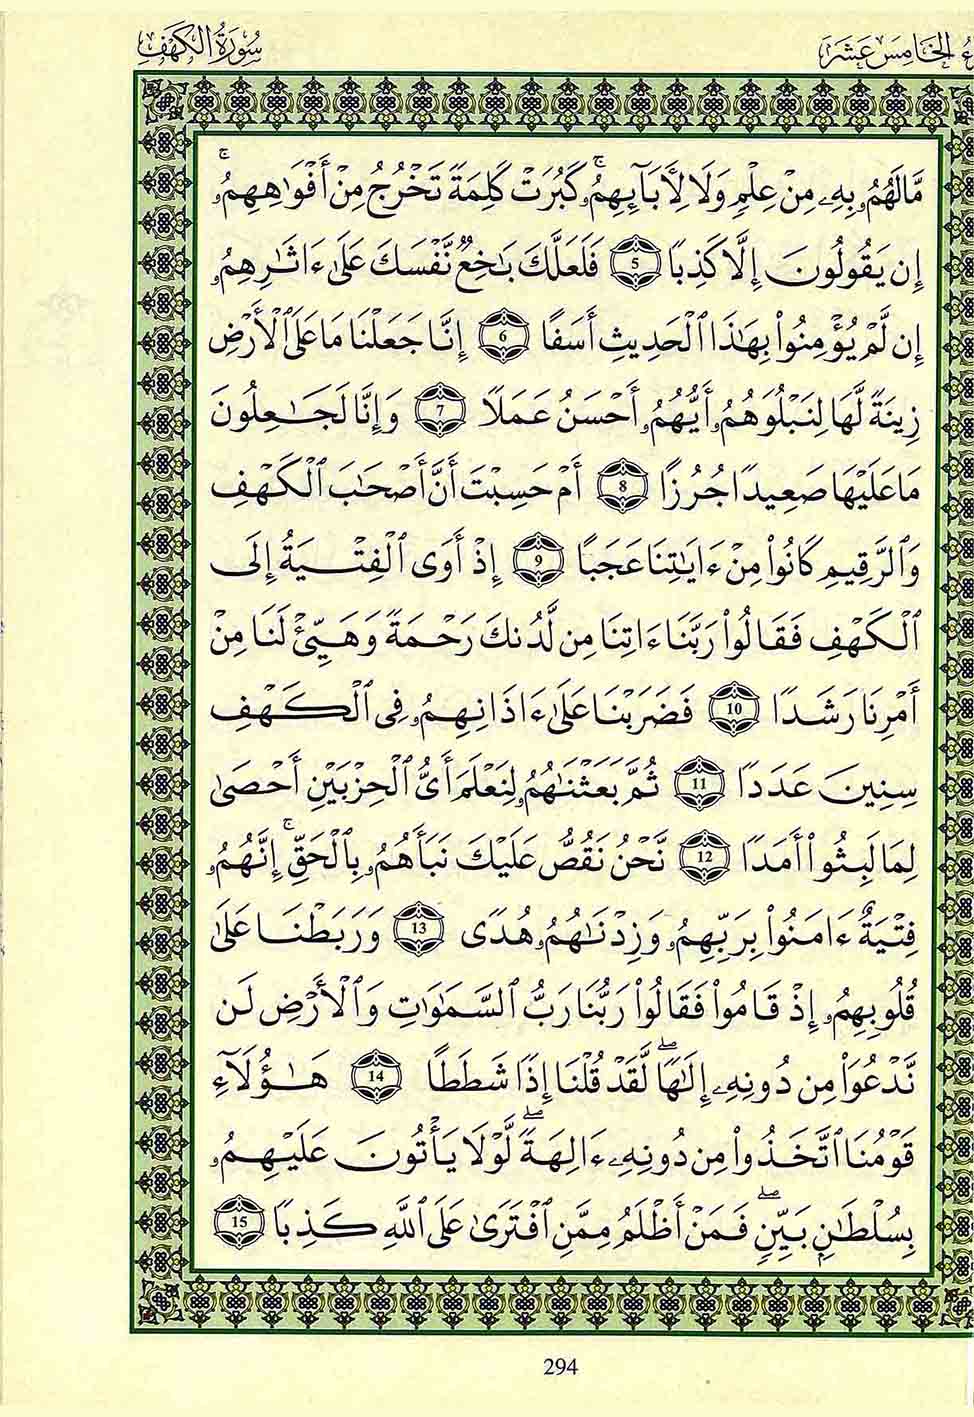 سُورَةُ الكَهْفِ
الخَامِسَ عَشَرَ
مَّا لَهُمُۥ بِهِۦ مِنْ عِلْمٍ وَلَا لِأٓبَآئِهِمُۥۚ كَبُرَتْ كَلِمَةً تَخْرُجُ مِنْ أَفْوَٰهِهِمُۥۚ
إِن يَقُولُونَ إِلَّا كَذِبًا 5 فَلَعَلَّكَ بَٰخِعٌ نَّفْسَكَ عَلَىٰ ءَاثَٰرِهِمُۥ
إِن لَّمْ يُؤْمِنُوا۟ بِهَٰذَا ٱلْحَدِيثِ أَسَفًا 6 إِنَّا جَعَلْنَا مَا عَلَى ٱلْأَرْضِ
زِينَةً لَّهَا لِنَبْلُوَهُمُۥ أَيُّهُمُۥ أَحْسَنُ عَمَلًا 7 وَإِنَّا لَجَٰعِلُونَ
مَا عَلَيْهَا صَعِيدًا جُرُزًا 8 أَمْ حَسِبْتَ أَنَّ أَصْحَٰبَ ٱلْكَهْفِ
وَٱلرَّقِيمِ كَانُوا۟ مِنْ ءَايَٰتِنَا عَجَبًا 9 إِذْ أَوَى ٱلْفِتْيَةُ إِلَى
ٱلْكَهْفِ فَقَالُوا۟ رَبَّنَا ءَاتِنَا مِن لَّدُنكَ رَحْمَةً وَهَيِّئْ لَنَا مِنْ
أَمْرِنَا رَشَدًا 10 فَضَرَبْنَا عَلَىٰ ءَاذَانِهِمُۥ فِى ٱلْكَهْفِ
سِنِينَ عَدَدًا 11 ثُمَّ بَعَثْنَٰهُمُۥ لِنَعْلَمَ أَىُّ ٱلْحِزْبَيْنِ أَحْصَىٰ
لِمَا لَبِثُوا۟ أَمَدًا 12 نَّحْنُ نَقُصُّ عَلَيْكَ نَبَأَهُمُۥ بِٱلْحَقِّۚ إِنَّهُمُۥ
فِتْيَةٌ ءَامَنُوا۟ بِرَبِّهِمُۥ وَزِدْنَٰهُمُۥ هُدًى 13 وَرَبَطْنَا عَلَىٰ
قُلُوبِهِمُۥ إِذْ قَامُوا۟ فَقَالُوا۟ رَبُّنَا رَبُّ ٱلسَّمَٰوَٰتِ وَٱلْأَرْضِ لَن
نَّدْعُوَا۟ مِن دُونِهِۦ إِلَٰهًاۖ لَّقَدْ قُلْنَا إِذًا شَطَطًا 14 هَٰٓؤُلَآءِ
قَوْمُنَا ٱتَّخَذُوا۟ مِن دُونِهِۦ ءَالِهَةًۖ لَّوْلَا يَأْتُونَ عَلَيْهِمُۥ
بِسُلْطَٰنٍۭ بَيِّنٍۖ فَمَنْ أَظْلَمُ مِمَّنِ ٱفْتَرَىٰ عَلَى ٱللَّهِ كَذِبًا 15
294